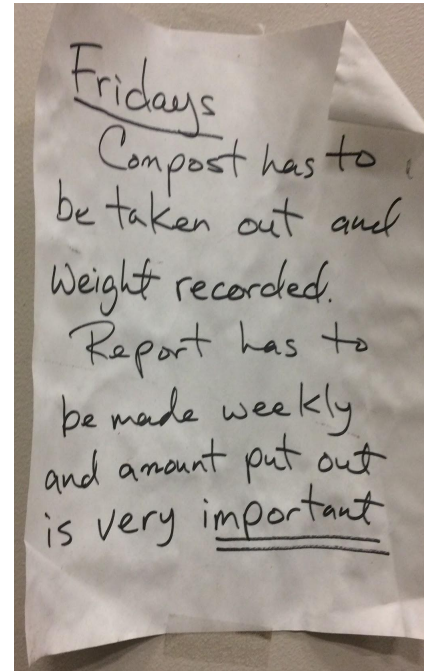 Fridays
Compost has to
be taken out and
Weight recorded.
Report has to
be made weekly
and amount put out
is very important